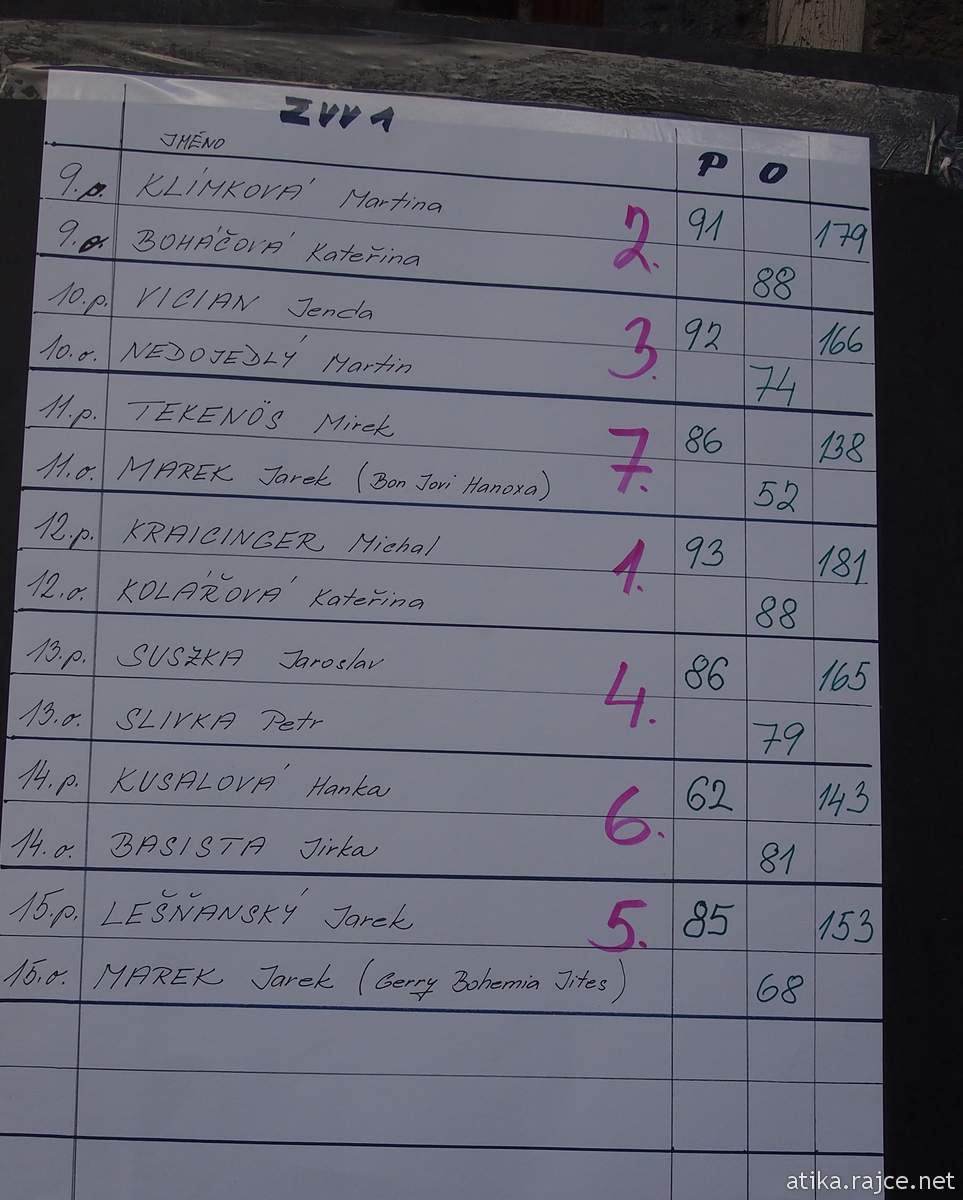 ZVV1
JMÉNO P O
9.p. KLÍMKOVÁ Martina 2. 91 179
9.o. BOHÁČOVÁ Kateřina 88
10.p. VICIAN Jenda 3. 92 166
10.o. NEDOJEDLÝ Martin 74
11.p. TEKENÖS Mirek 7. 86 138
11.o. MAREK Jarek (Bon Jovi Hanoxa) 52
12.p. KRAICINGER Michal 1. 93 181
12.o. KOLÁŘOVÁ Kateřina 88
13.p. SUSZKA Jaroslav 4. 86 165
13.o. SLIVKA Petr 79
14.p. KUSALOVÁ Hanka 6. 62 143
14.o. BASISTA Jirka 81
15.p. LEŠŇANSKÝ Jarek 5. 85 153
15.o. MAREK Jarek (Gerry Bohemia Jites) 68
atika.rajce.net